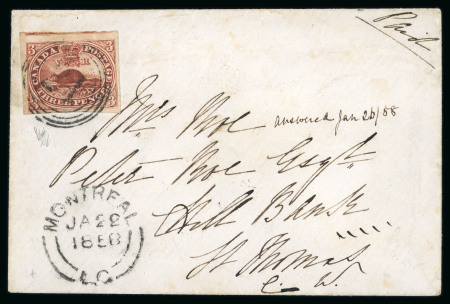 Paid
3 CANADA POSTAGE 3
THREE PENCE
Mrs Moe
answered Jan 26/58
Peter Moe Esqr
Hill Bank
St Thomas
C. W.
MONTREAL
JA 22
1858
L.C.